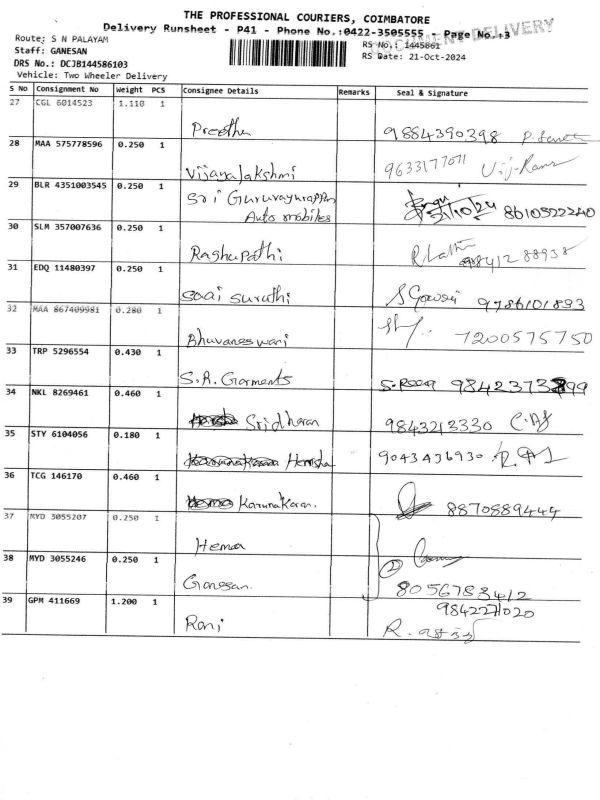 THE PROFESSIONAL COURIERS, COIMBATORE
Delivery Runsheet - P41 - Phone No.:0422-3505555 - Page No.:3
DELIVERY
Route: S N PALAYAM
RS No.: 1445861
Staff: GANESAN
RS Date: 21-Oct-2024
DRS No.: DCJB144586103
Vehicle: Two Wheeler Delivery
S No Consignment No Weight PCS Consignee Details Remarks Seal & Signature
27 CGL 6014523 1.110 1
Preetha 9884390398
28 MAA 575778596 0.250 1
Vijayalakshmi 9633177071
29 BLR 4351003545 0.250 1
Sri Guruvayurappan
Auto mobiles 21/10/24 8610522240
30 SLM 357007636 0.250 1
Raghupathi
31 EDQ 11480397 0.250 1
Saai Suruthi 9786101893
32 MAA 867409981 0.280 1
Bhuvaneswari 7200575750
33 TRP 5296554 0.430 1
S.A. Garments
34 NKL 8269461 0.460 1
Sridharan 9843213330
35 STY 6104056 0.180 1
Harisha 9043436930
36 TCG 146170 0.460 1
Karunakaran. 8870889444
37 MYD 3055207 0.250 1
Hema
38 MYD 3055246 0.250 1
2
Ganesan. 8056783412
39 GPM 411669 1.200 1
9842271020
Rani